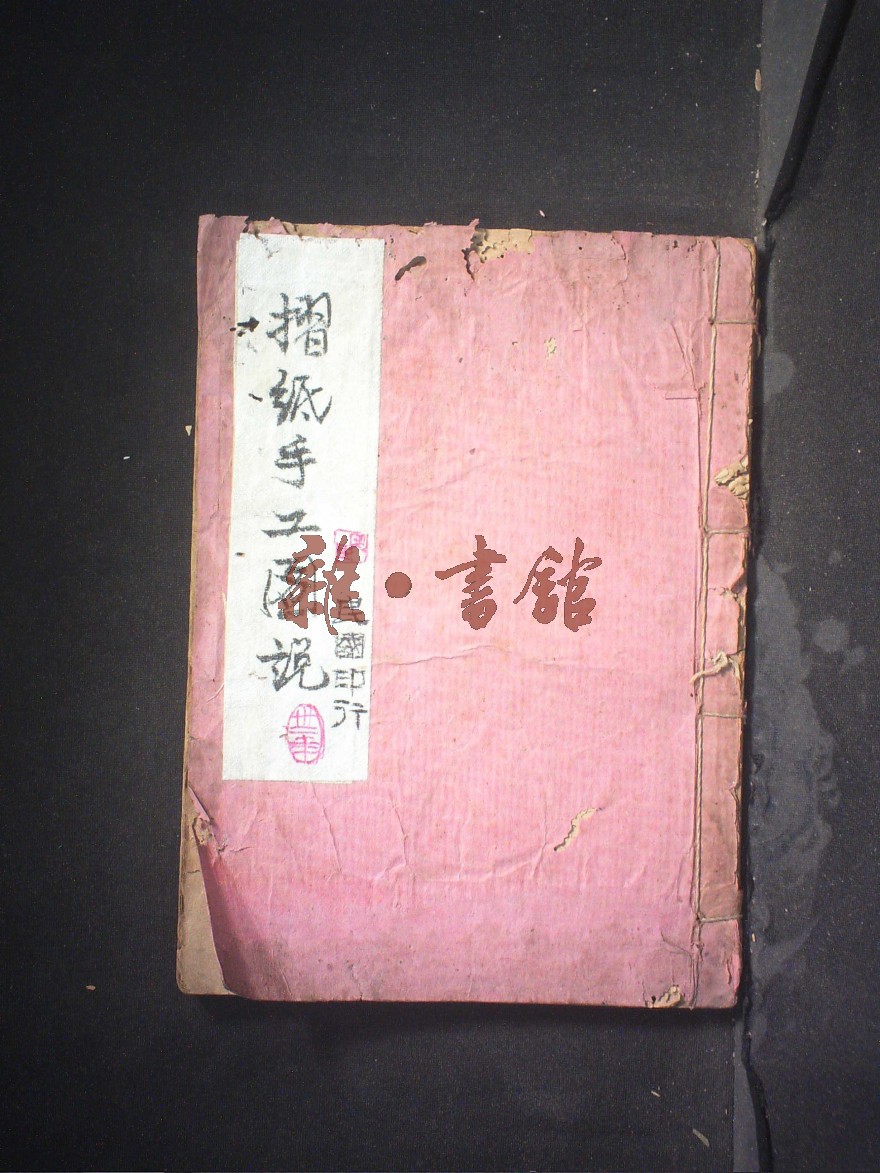 摺紙手工圖説
民國印行
雜·書館